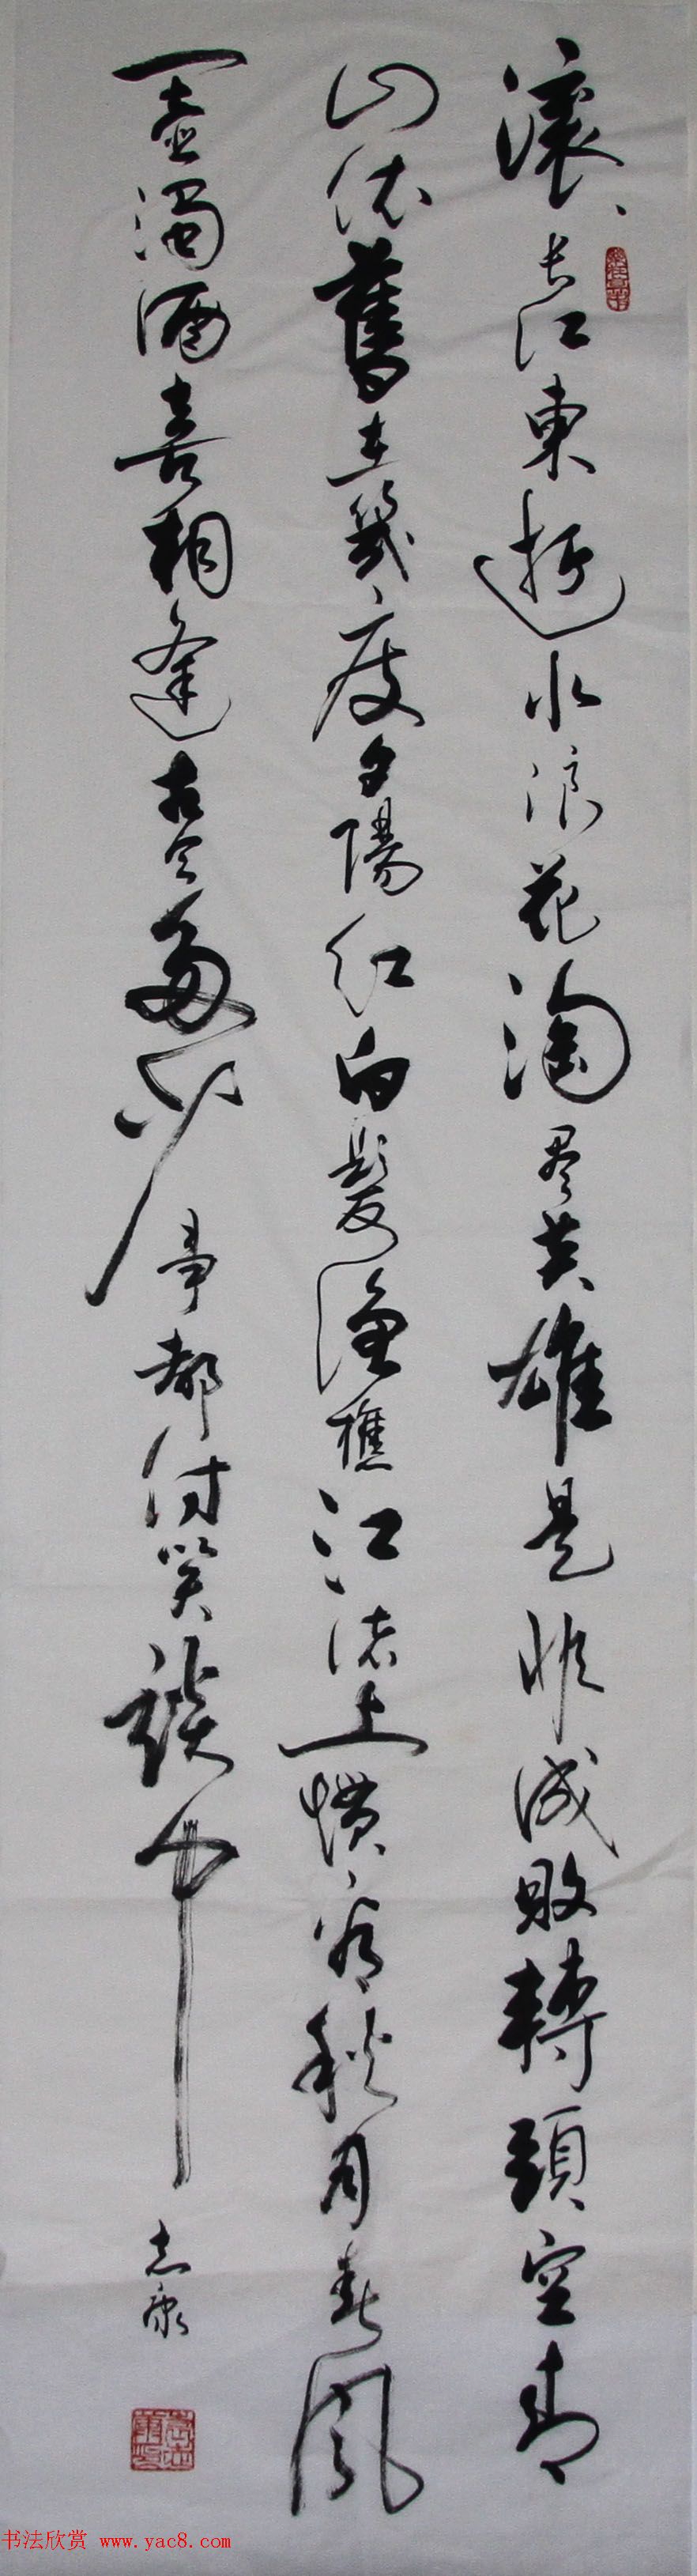 滚、长江東逝水浪花淘尽英雄是非成敗轉頭空青
山依舊在幾度夕陽红白髮渔樵江渚上慣看秋月春風
一壶濁酒喜相逢古今多少事都付笑談中
志康
书法欣赏 www.yac8.com